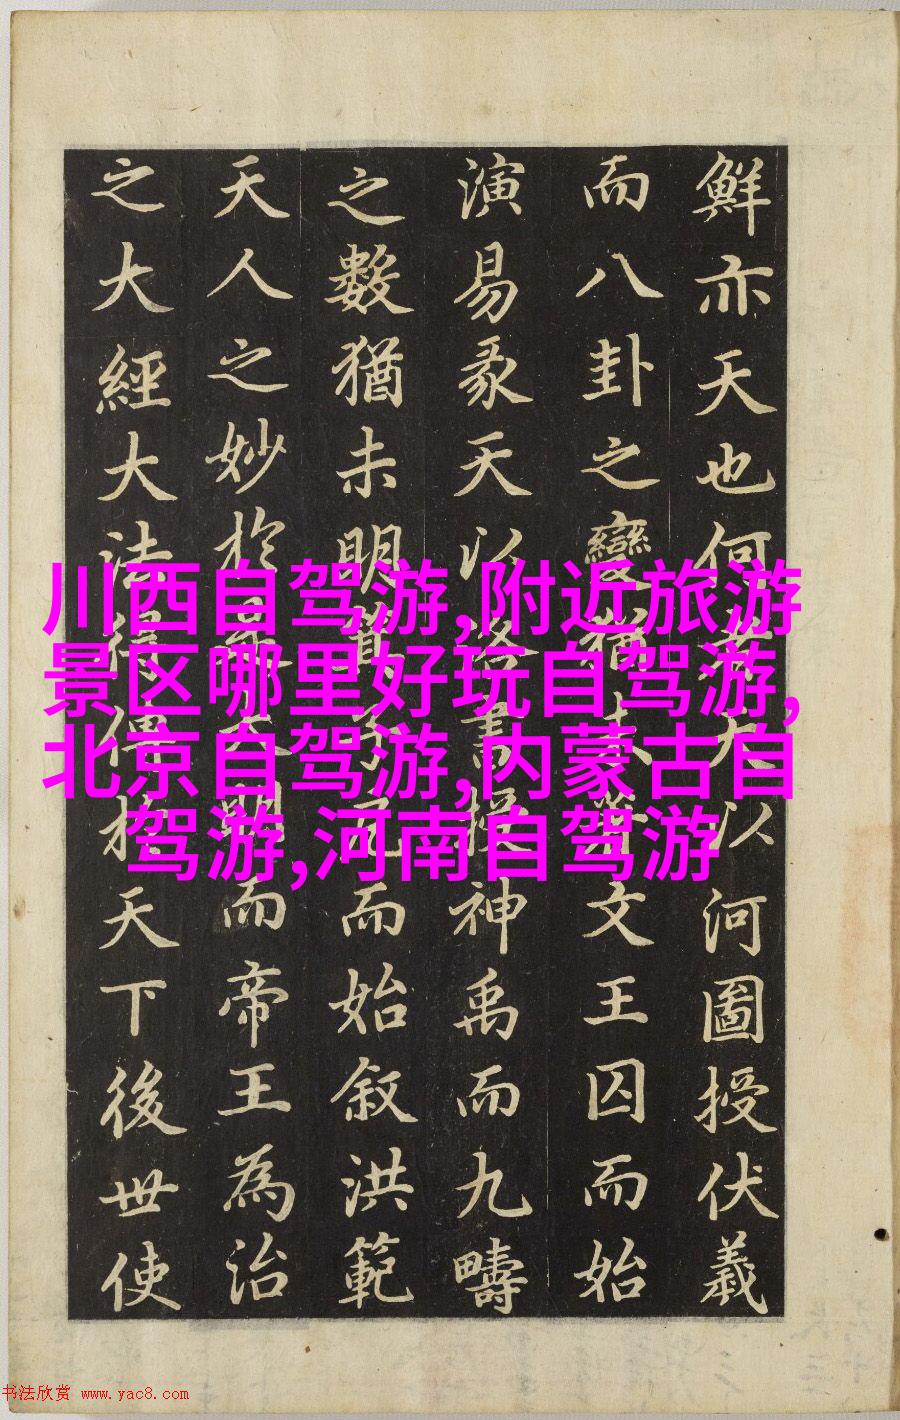 鮮亦天也何天以河圖授伏羲
而八卦之變猶未文王囚而始
演易彖天以洛書授神禹而九疇
之數猶未明箕子而始叙洪範
天人之妙於明而帝王為治
之大經大法得傳於天下後世使
川西自驾游,附近旅游
景区哪里好玩自驾游,
北京自驾游,内蒙古自
驾游,河南自驾游
书法欣赏 www.yac8.com